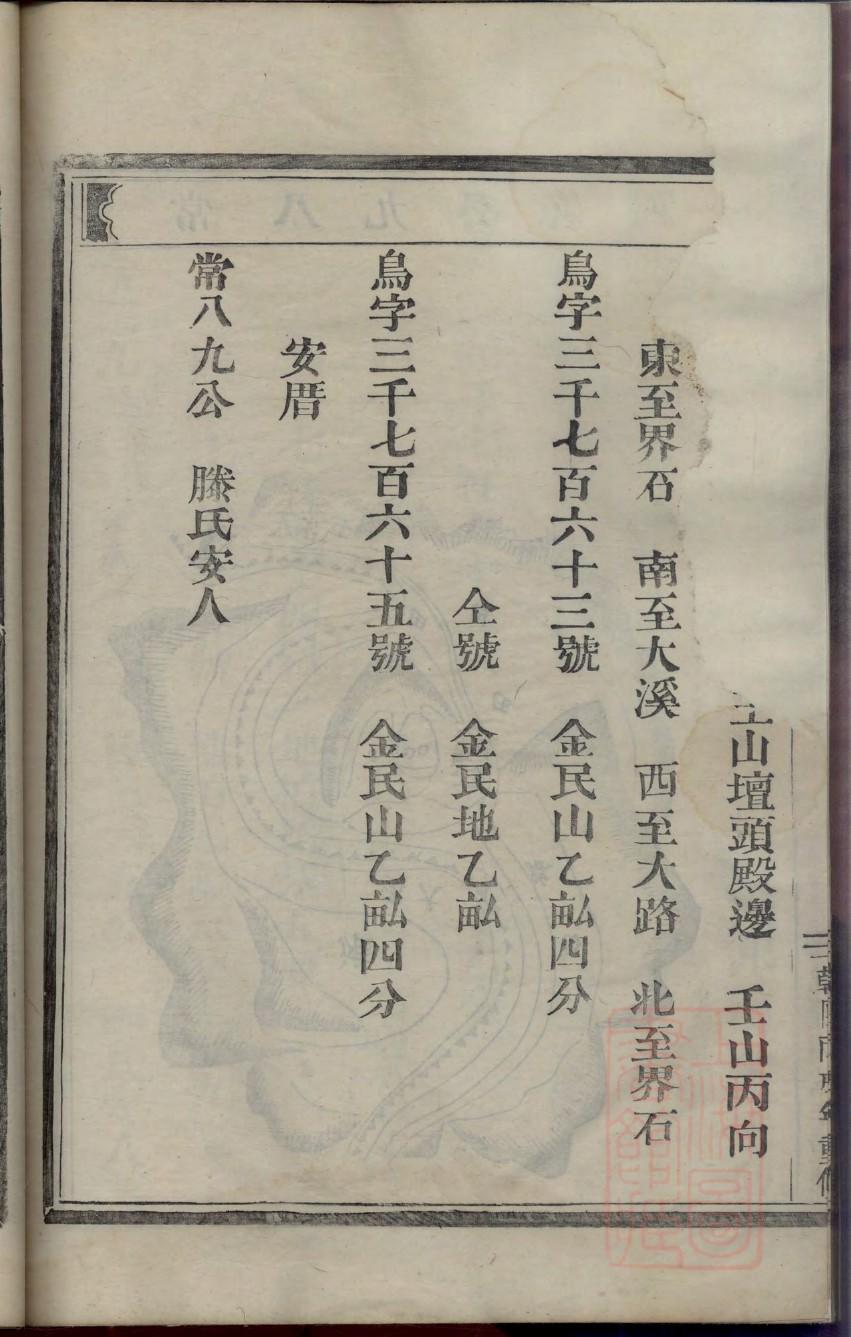 山壇頭殿邊　壬山丙向
東至界石　南至大溪　西至大路　北至界石
鳥字三千七百六十三號　金民山乙畝四分
仝號　金民地乙畝
鳥字三千七百六十五號　金民山乙畝四分
安厝
常八九公　滕氏安人